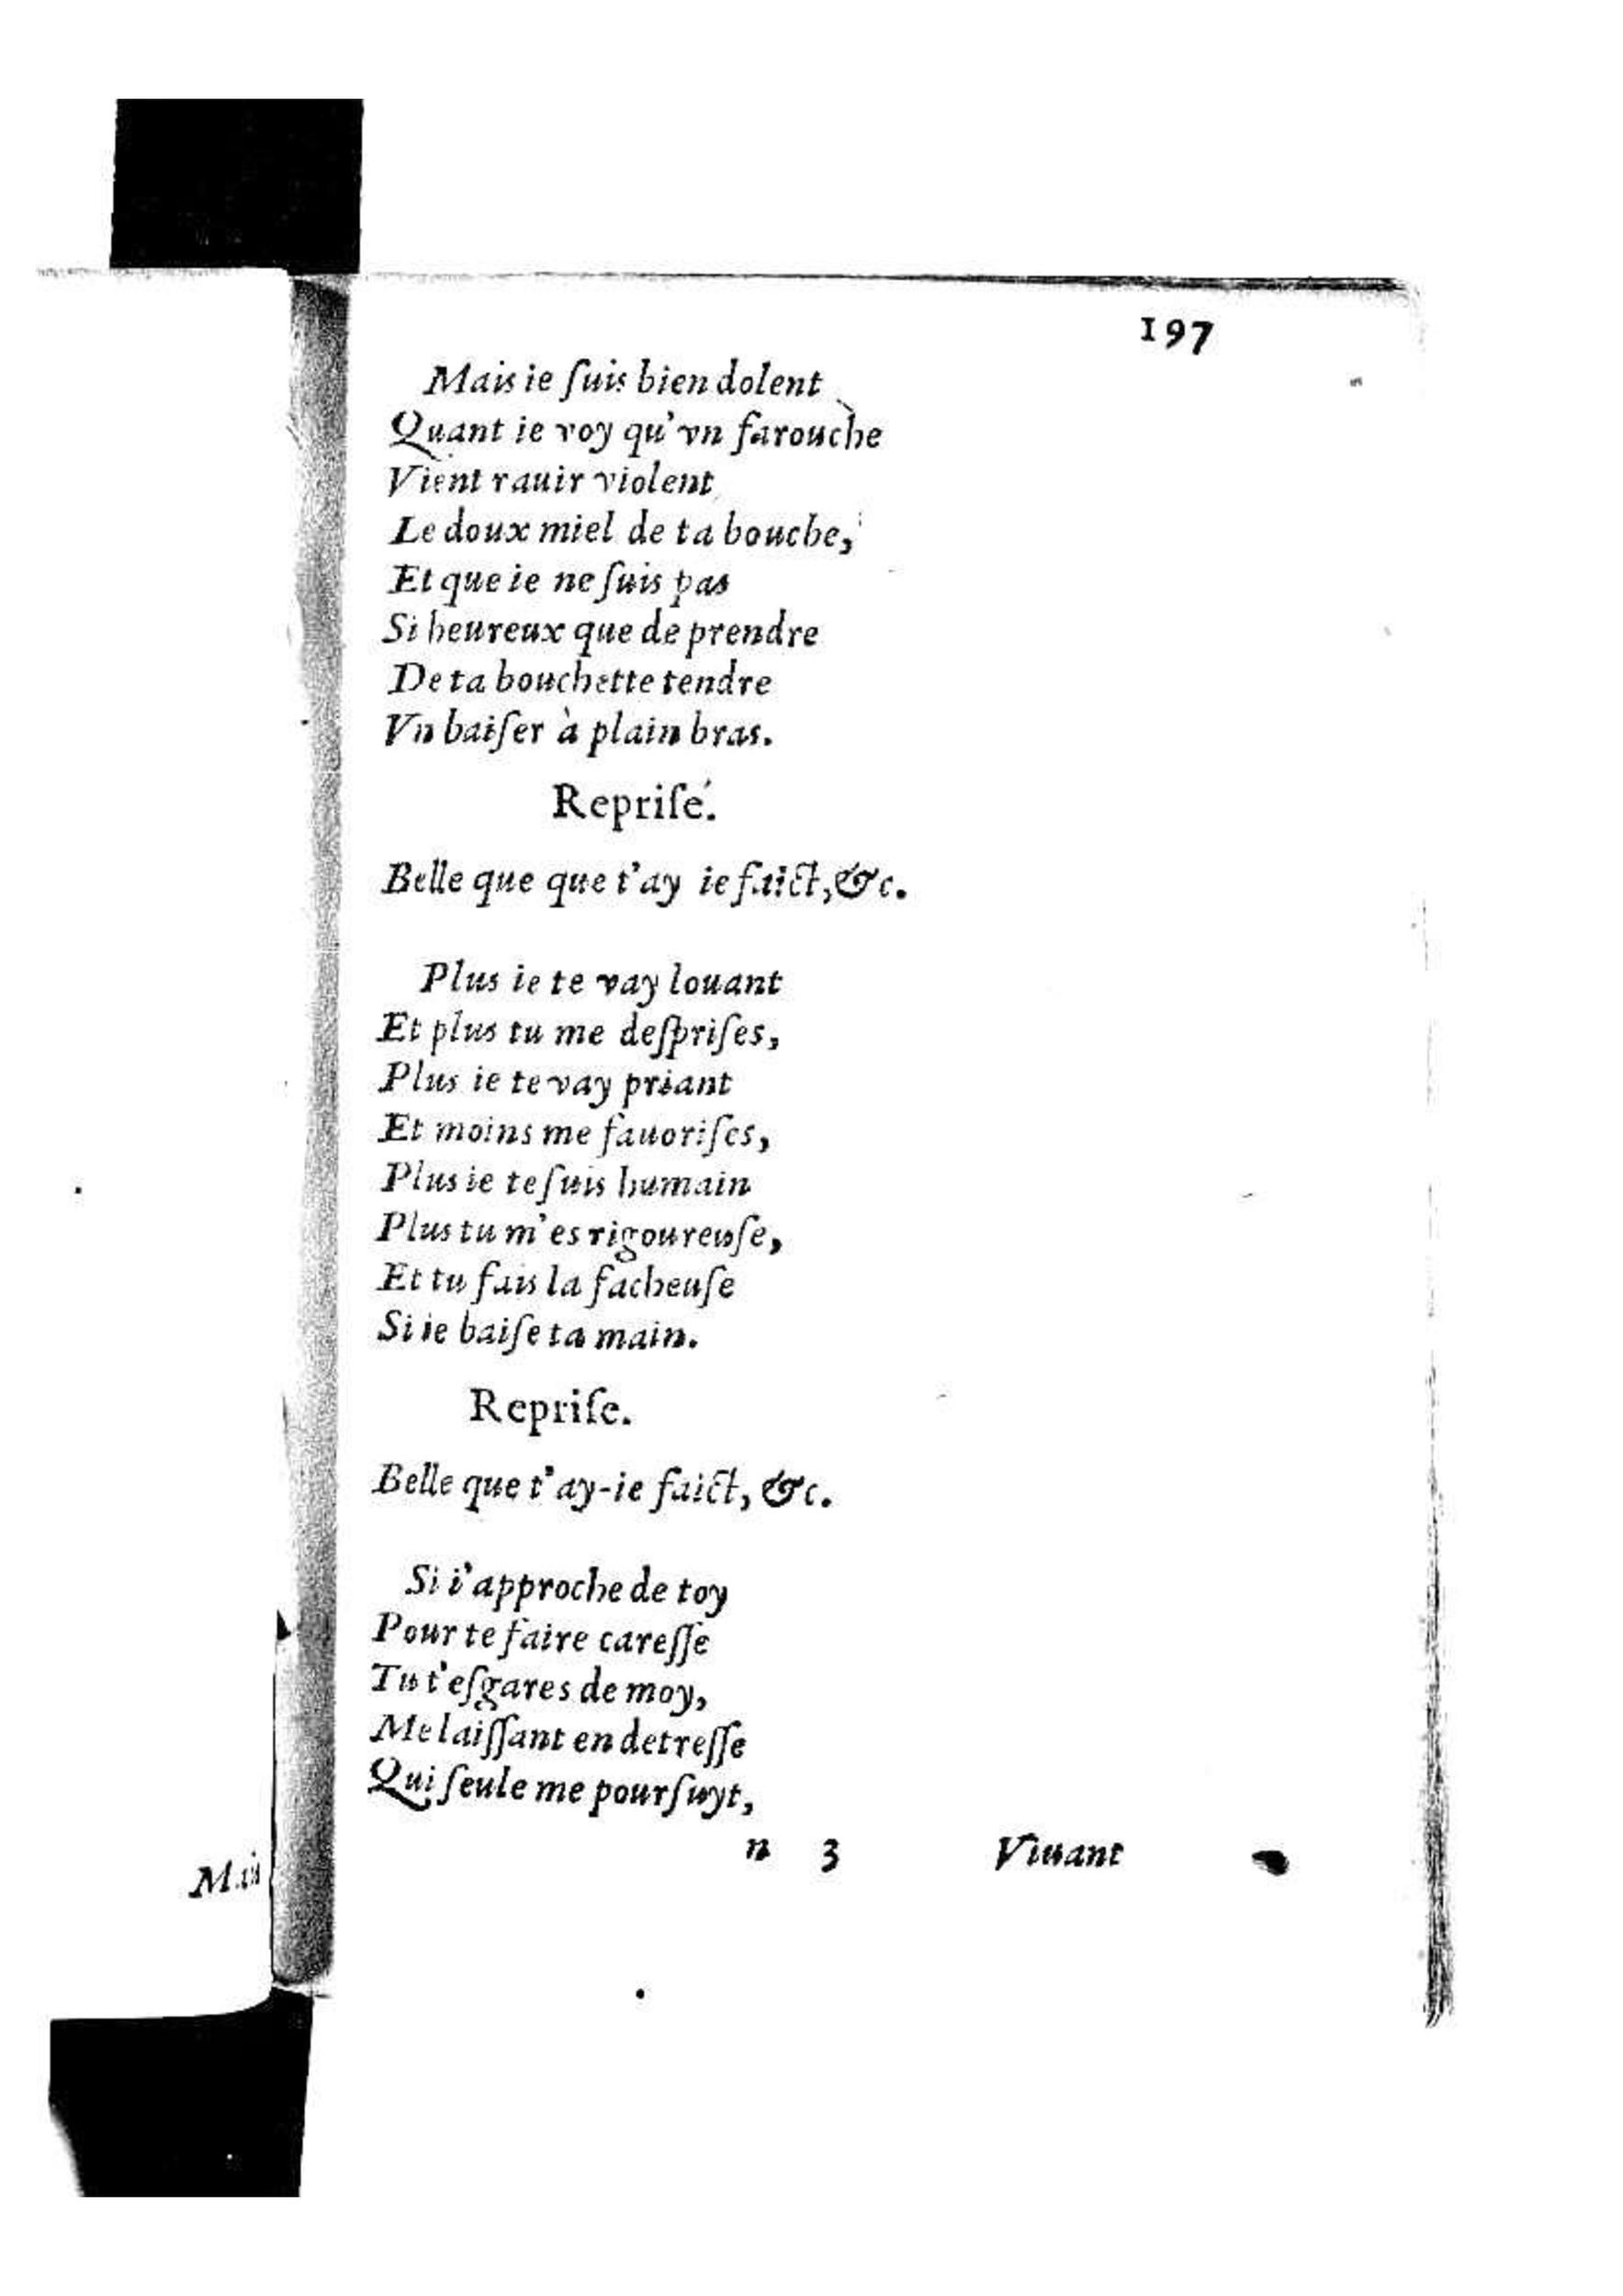 197
Mais ie ſuis bien dolent
Quant ie voy qu'vn farouche
Vient rauir violent
Le doux miel de ta bouche,
Et que ie ne ſuis pas
Si heureux que de prendre
De ta bouchette tendre
Vn baiſer à plain bras.
Repriſe.
Belle que que t'ay ie faict, &c.
Plus ie te vay louant
Et plus tu me deſpriſes,
Plus ie te vay priant
Et moins me fauoriſes,
Plus ie te ſuis humain
Plus tu m'es rigoureuſe,
Et tu fais la facheuſe
Si ie baiſe ta main.
Repriſe.
Belle que t'ay-ie faict, &c.
Si i'approche de toy
Pour te faire careſſe
Tu t'eſgares de moy,
Me laiſſant en detreſſe
Qui ſeule me pourſuyt,
n 3 Viuant
Mais